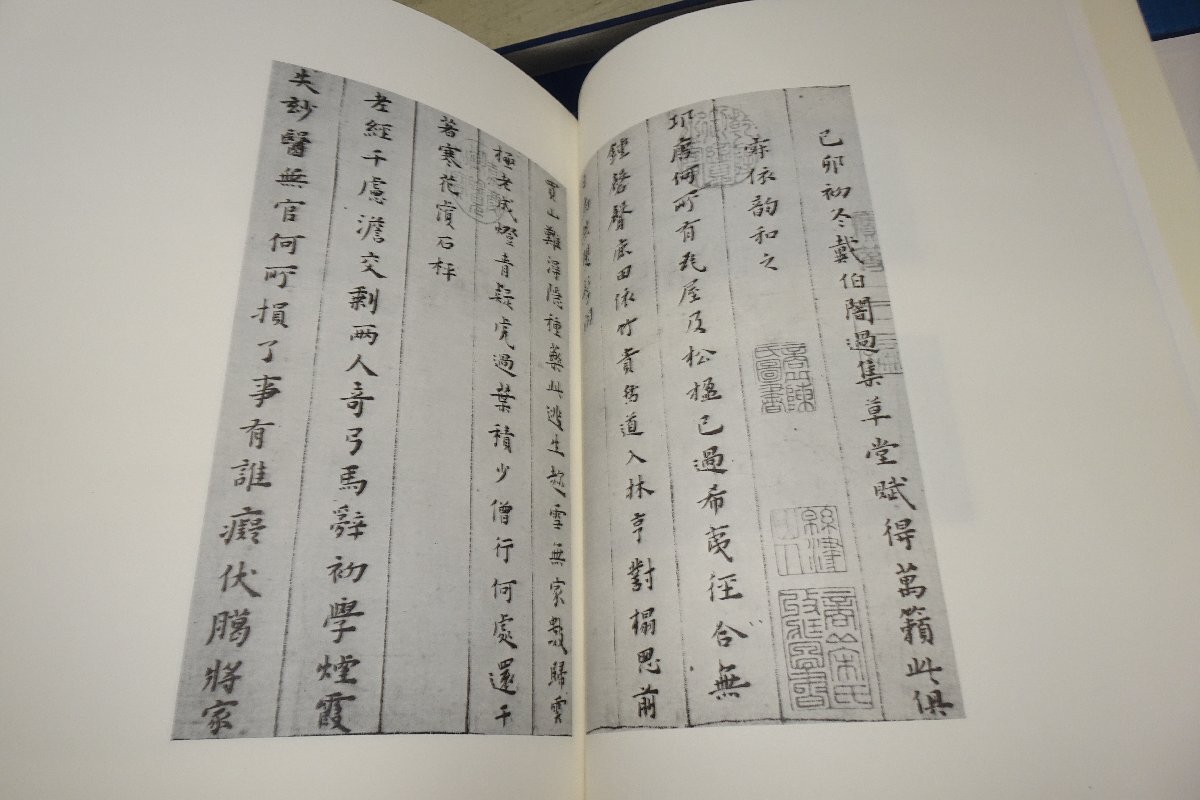 己卯初冬戴伯闇過集草堂賦得萬籟此俱
寂依韵和之
廬何所有瓦屋及松楹已過希夷徑合無
鐘磬聲田依竹道入林亨對榻思前
買山難得隱種藥此逃生雪無家數歸雲
極老成燈青疑虎過葉積少僧行何處還千
著寒花賞石枰
老經千慮澹交剩兩人奇弓馬辭初學煙霞
失妙醫無官何所損了事有誰癡伏臘將家